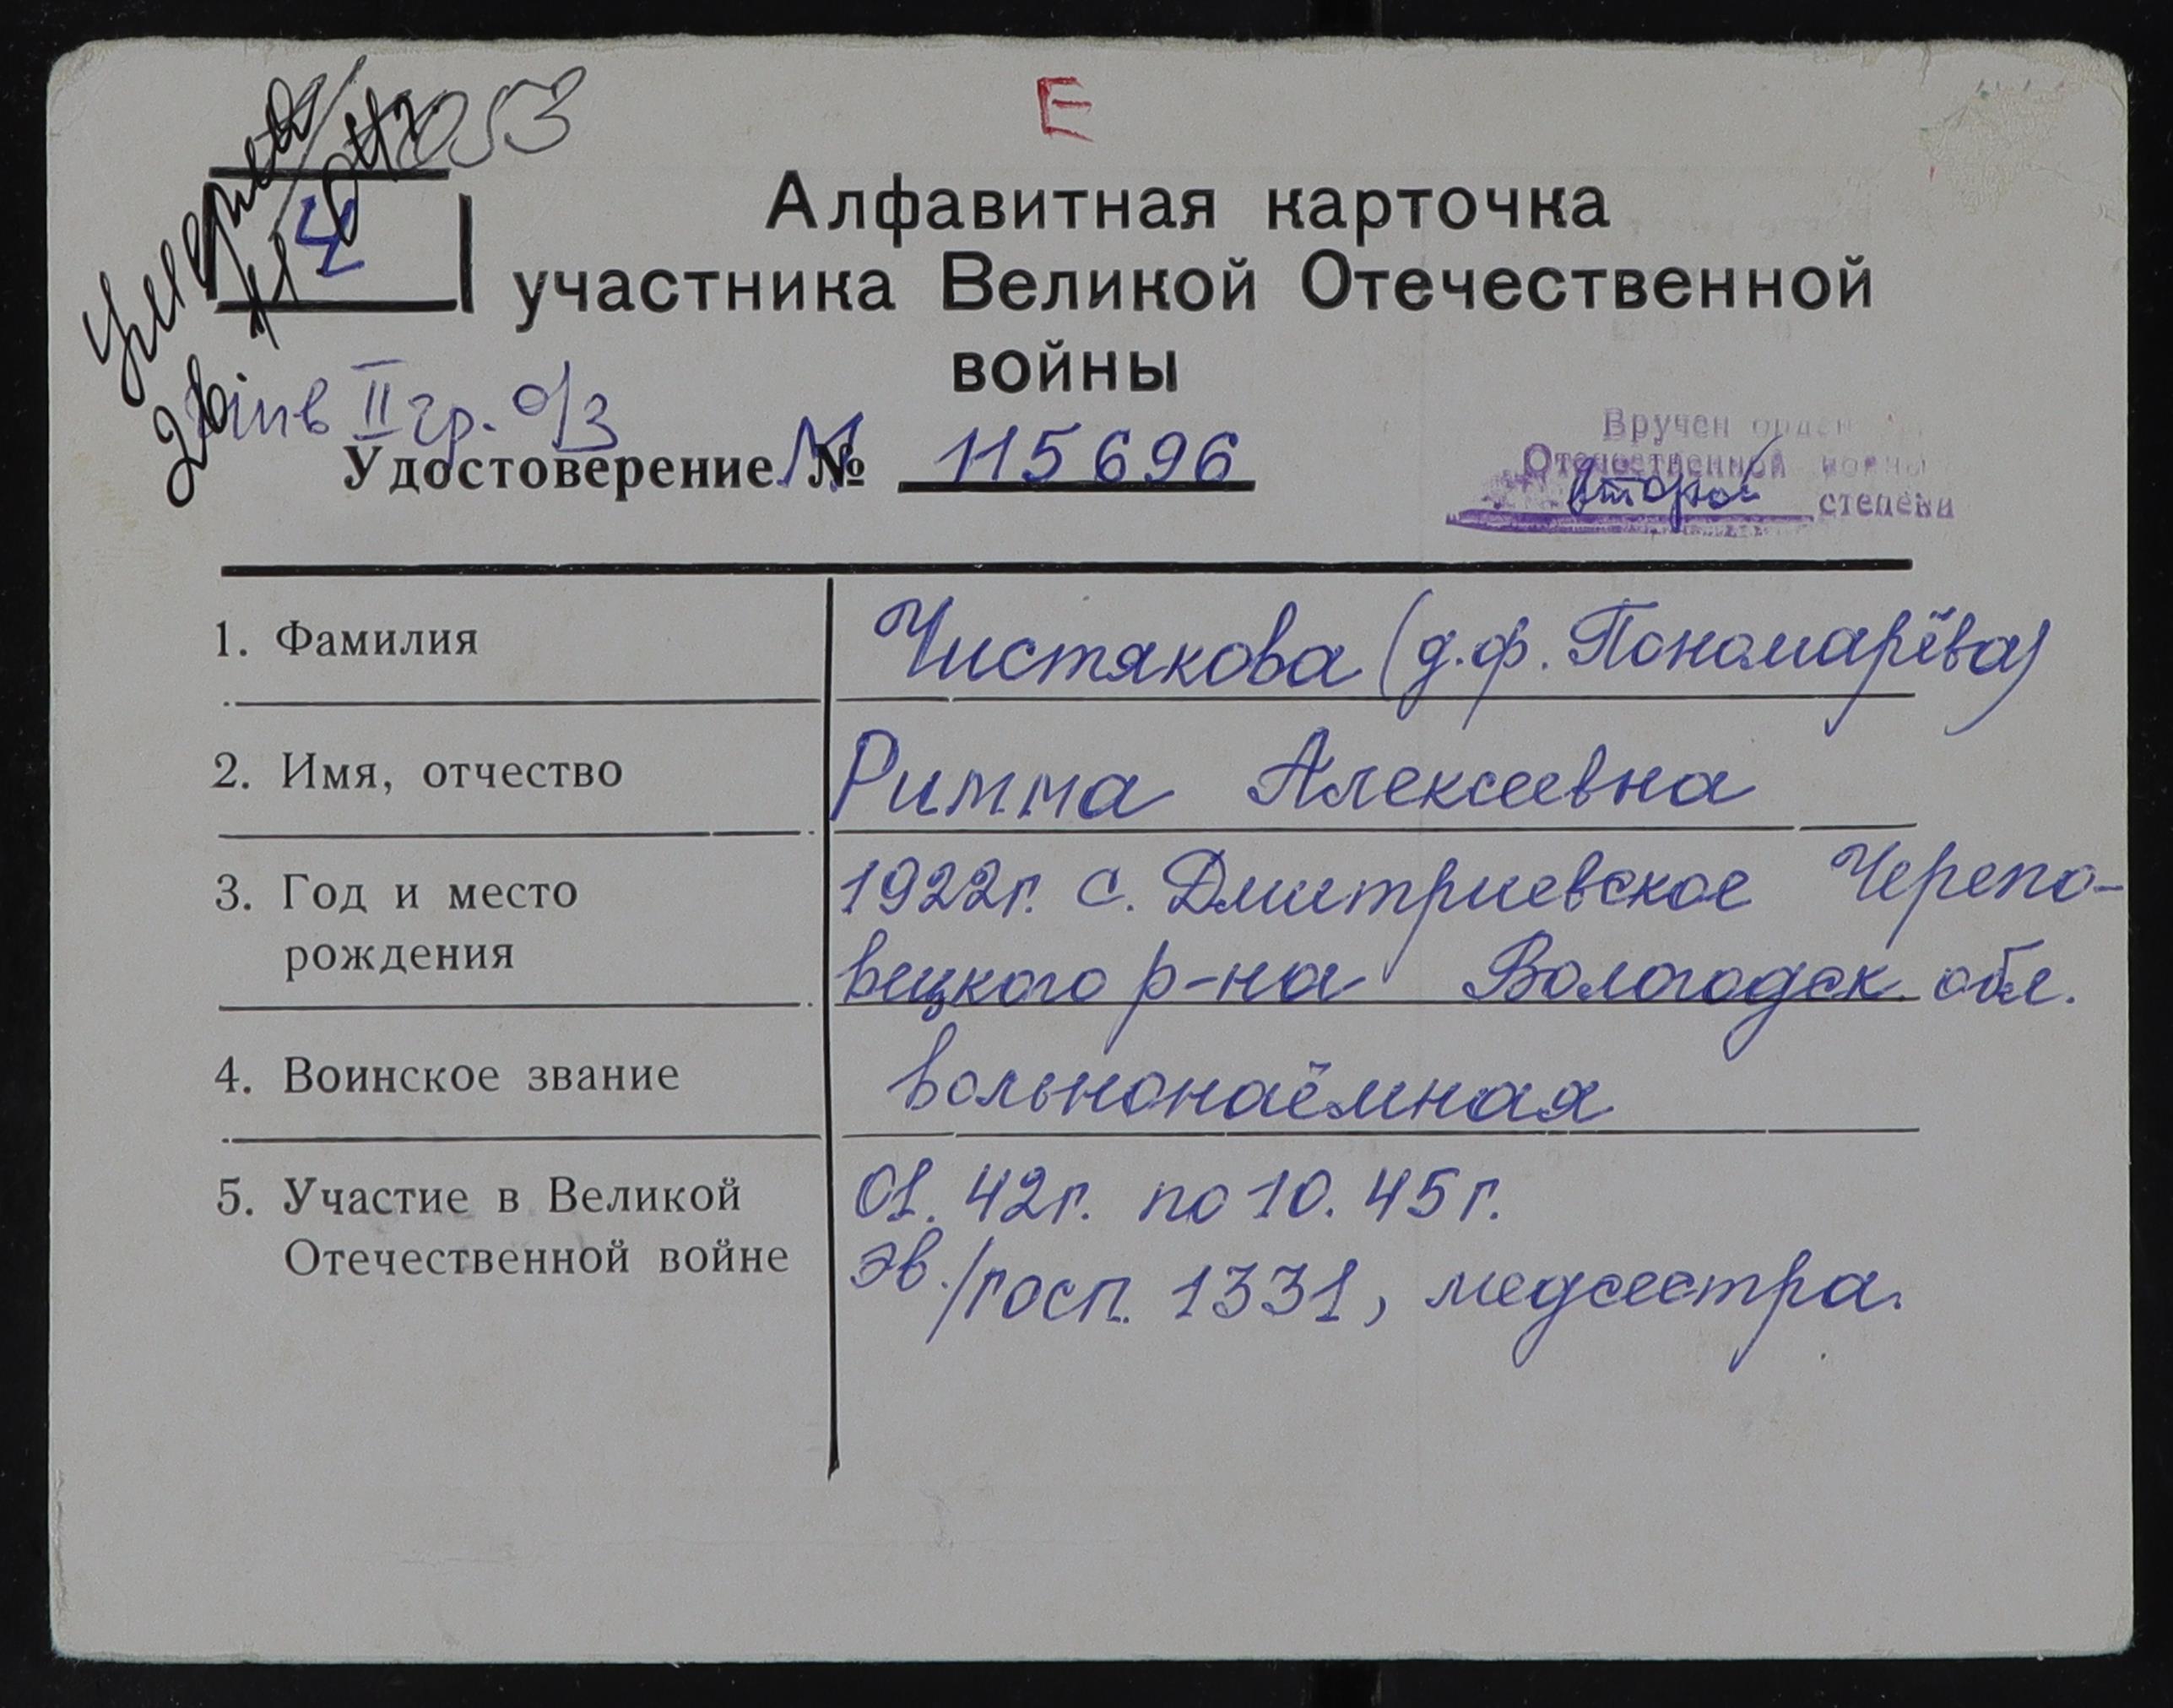 Е
053
Умерла
Ч
Алфавитная карточка
участника Великой Отечественной
войны
инв II гр. о/з
Удостоверение №
115696
Вручен орден
Отечественной войны
второй степени
1. Фамилия
Чистякова (д.ф. Пономарёва)
2. Имя, отчество
Римма Алексеевна
3. Год и место
рождения
1922г. с. Дмитриевское Черепо-
вецкого р-на Вологодск. обл.
4. Воинское звание
вольнонаёмная
5. Участие в Великой
Отечественной войне
01. 42г. по 10. 45г.
эв./госп. 1331, медсестра.